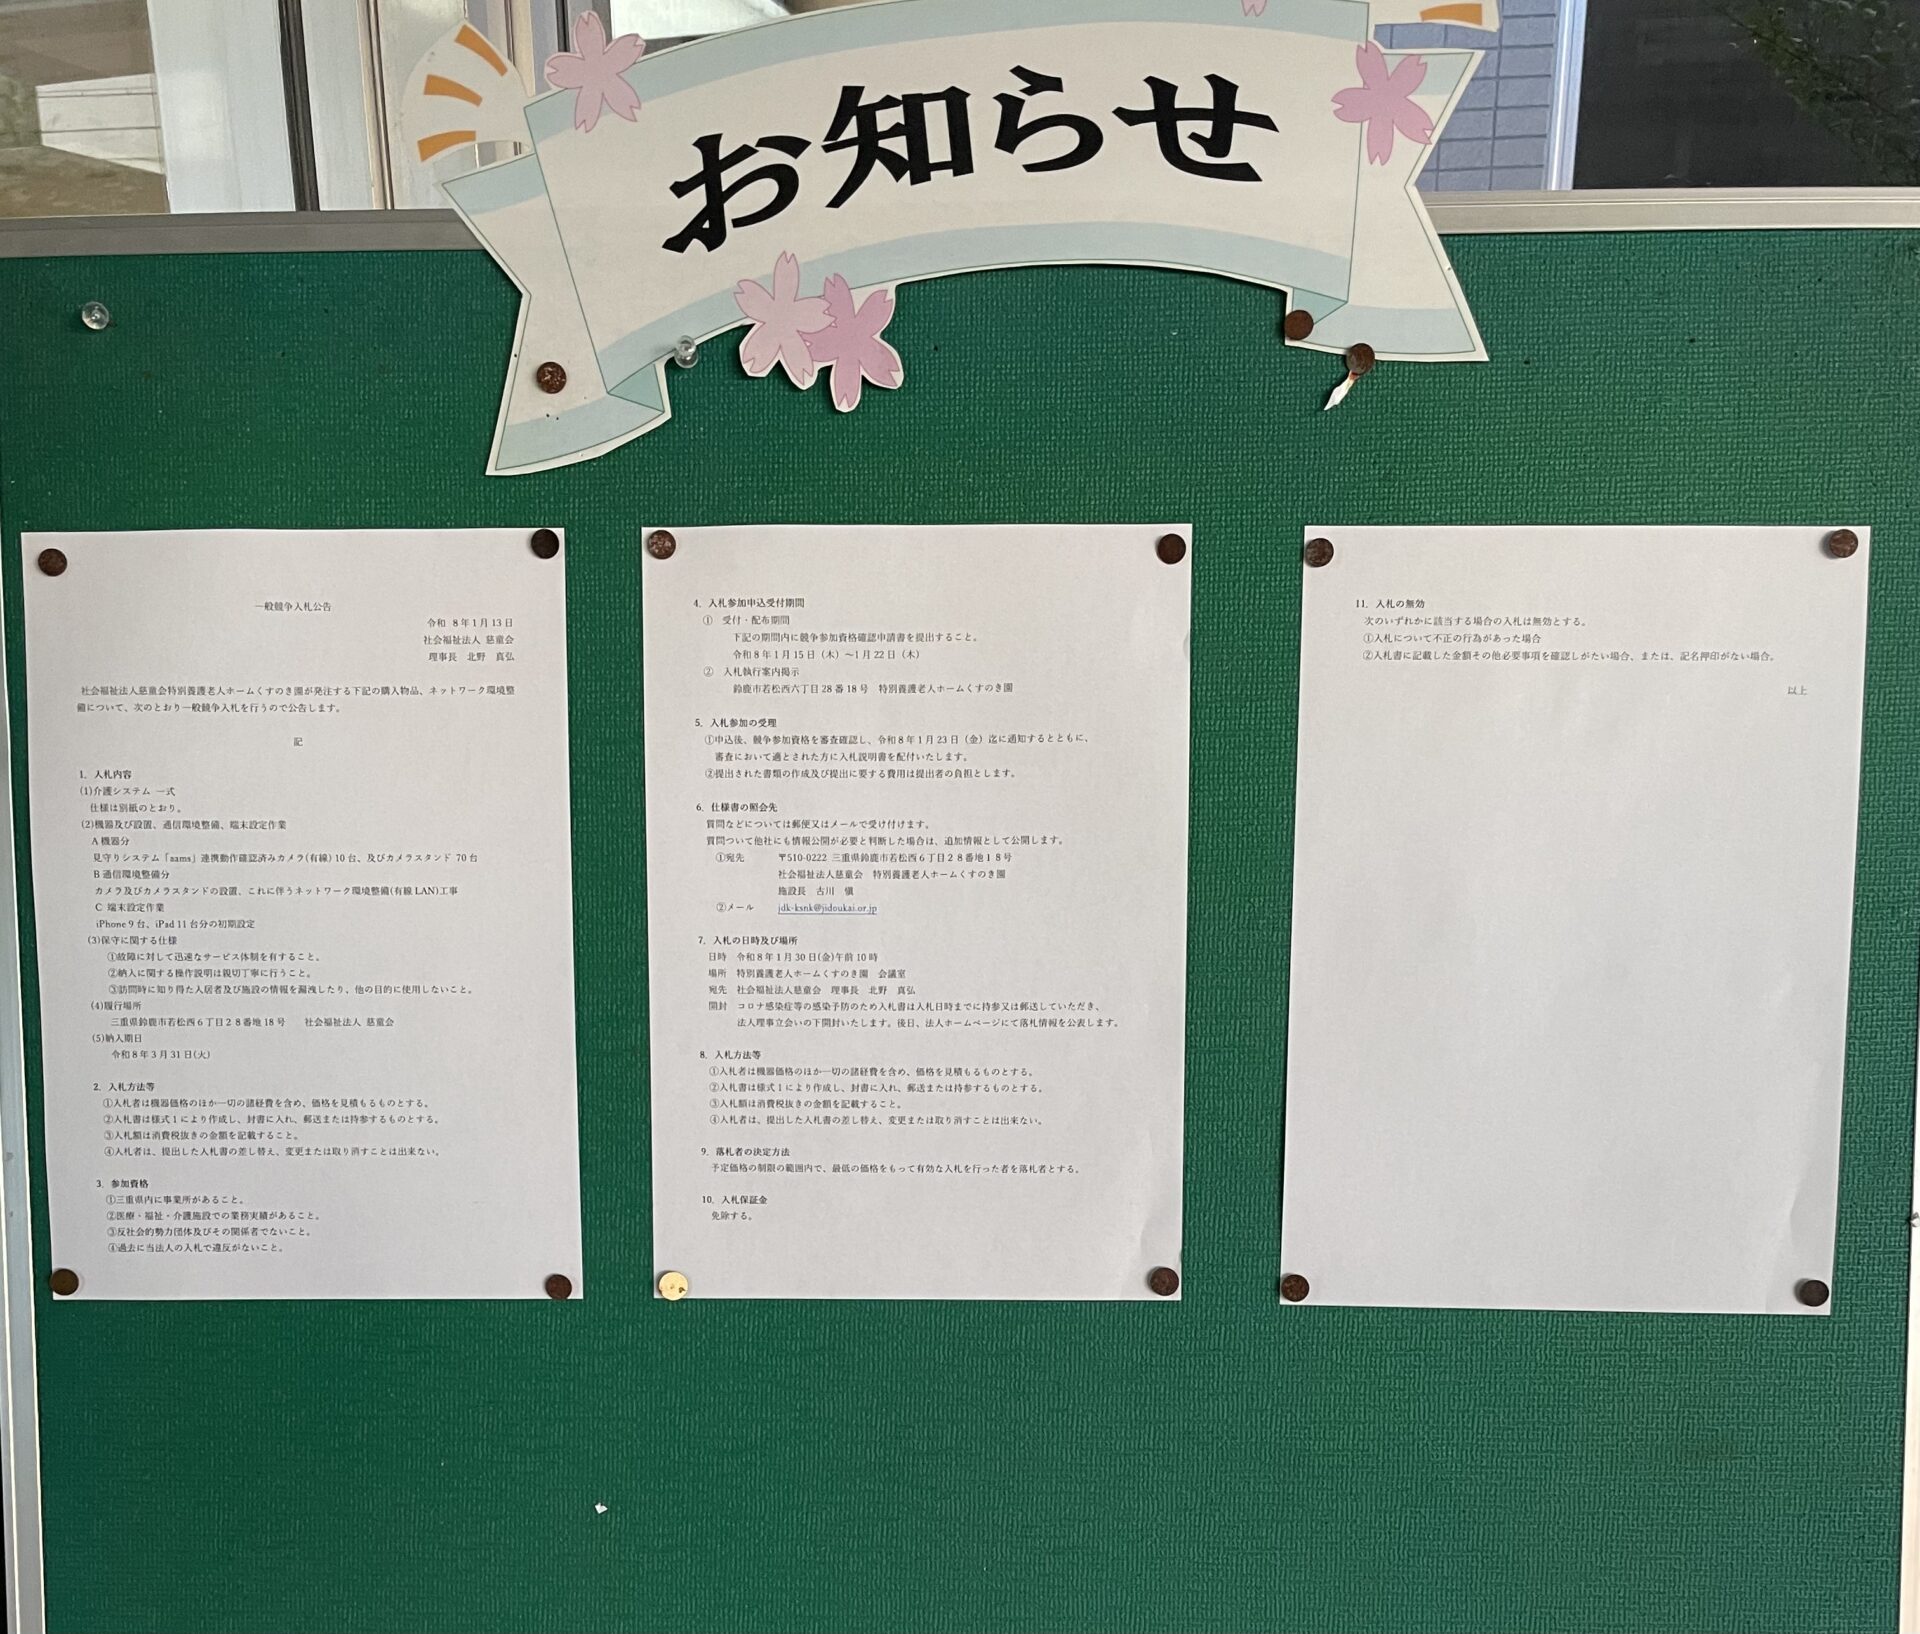 お知らせ
一般競争入札公告
令和 8年1月13日
社会福祉法人 慈童会
理事長 北野 真弘
社会福祉法人慈童会特別養護老人ホームくすのき園が発注する下記の購入物品、ネットワーク環境整
備について、次のとおり一般競争入札を行うので公告します。
記
1. 入札内容
(1)介護システム 一式
仕様は別紙のとおり。
(2)機器及び設置、通信環境整備、端末設定作業
A 機器分
見守りシステム「aams」連携動作確認済みカメラ(有線) 10台、及びカメラスタンド 70台
B 通信環境整備分
カメラ及びカメラスタンドの設置、これに伴うネットワーク環境整備(有線LAN)工事
C 端末設定作業
iPhone 9台、iPad 11台分の初期設定
(3)保守に関する仕様
①故障に対して迅速なサービス体制を有すること。
②納入に関する操作説明は親切丁寧に行うこと。
③訪問時に知り得た入居者及び施設の情報を漏洩したり、他の目的に使用しないこと。
(4)履行場所
三重県鈴鹿市若松西6丁目28番地18号 社会福祉法人 慈童会
(5)納入期日
令和8年3月31日(火)
2. 入札方法等
①入札者は機器価格のほか一切の諸経費を含め、価格を見積もるものとする。
②入札書は様式1により作成し、封書に入れ、郵送または持参するものとする。
③入札額は消費税抜きの金額を記載すること。
④入札者は、提出した入札書の差し替え、変更または取り消すことは出来ない。
3. 参加資格
①三重県内に事業所があること。
②医療・福祉・介護施設での業務実績があること。
③反社会的勢力団体及びその関係者でないこと。
④過去に当法人の入札で違反がないこと。
4. 入札参加申込受付期間
① 受付・配布期間
下記の期間内に競争参加資格確認申請書を提出すること。
令和8年1月15日（木）～1月22日（木）
② 入札執行案内掲示
鈴鹿市若松西六丁目28番18号 特別養護老人ホームくすのき園
5. 入札参加の受理
①申込後、競争参加資格を審査確認し、令和8年1月23日（金）迄に通知するとともに、
審査において適とされた方に入札説明書を配付いたします。
②提出された書類の作成及び提出に要する費用は提出者の負担とします。
6. 仕様書の照会先
質問などについては郵便又はメールで受け付けます。
質問ついて他社にも情報公開が必要と判断した場合は、追加情報として公開します。
①宛先 〒510-0222 三重県鈴鹿市若松西6丁目28番地18号
社会福祉法人慈童会 特別養護老人ホームくすのき園
施設長 古川 愼
②メール jdk-ksnk@jidoukai.or.jp
7. 入札の日時及び場所
日時 令和8年1月30日(金)午前10時
場所 特別養護老人ホームくすのき園 会議室
宛先 社会福祉法人慈童会 理事長 北野 真弘
開封 コロナ感染症等の感染予防のため入札書は入札日時までに持参又は郵送していただき、
法人理事立会いの下開封いたします。後日、法人ホームページにて落札情報を公表します。
8. 入札方法等
①入札者は機器価格のほか一切の諸経費を含め、価格を見積もるものとする。
②入札書は様式1により作成し、封書に入れ、郵送または持参するものとする。
③入札額は消費税抜きの金額を記載すること。
④入札者は、提出した入札書の差し替え、変更または取り消すことは出来ない。
9. 落札者の決定方法
予定価格の制限の範囲内で、最低の価格をもって有効な入札を行った者を落札者とする。
10. 入札保証金
免除する。
11. 入札の無効
次のいずれかに該当する場合の入札は無効とする。
①入札について不正の行為があった場合
②入札書に記載した金額その他必要事項を確認しがたい場合、または、記名押印がない場合。
以上